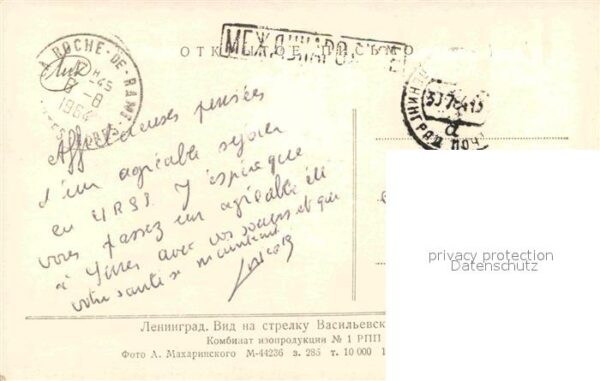 ОТКРЫТОЕ ПИСЬМО
МЕЖДУНАРОДНОЕ
LA ROCHE-DE-RAME
17 H 45
8 - 8
1964
ЛЕНИНГРАД ПОЧ
30 7 64 13
Affectueuses pensées
d'un agréable séjour
en URSS. J'espère que
vous passez un agréable été
à
avec vos soeurs et que
votre santé se maintient
privacy protection
Datenschutz
Ленинград. Вид на стрелку Васильевск
Комбинат изопродукции № 1 РПП
Фото А. Махаринского М-44236 з. 285 т. 10 000 1